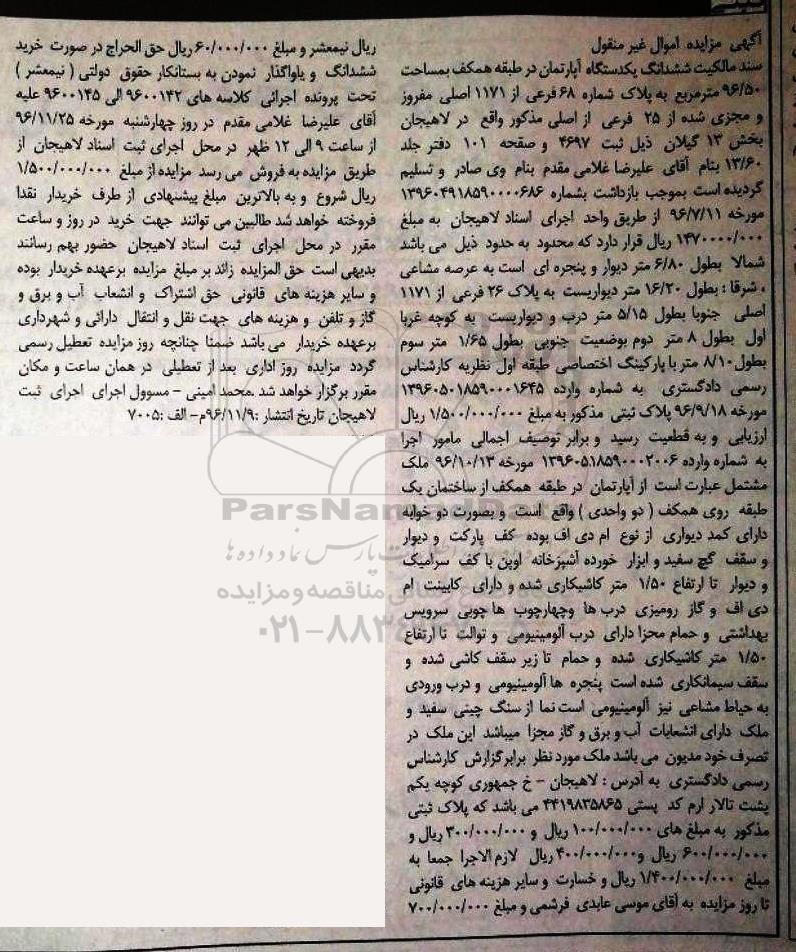 آگهی مزایده اموال غیر منقول
سند مالکیت ششدانگ یکدستگاه آپارتمان در طبقه همکف بمساحت
۹۶/۵۰ مترمربع به پلاک شماره ۶۸ فرعی از ۱۱۷۱ اصلی مفروز
و مجزی شده از ۲۵ فرعی از اصلی مذکور واقع در لاهیجان
بخش ۱۳ گیلان ذیل ثبت ۴۶۹۷ و صفحه ۱۰۱ دفتر جلد
۱۳/۶۰ بنام آقای علیرضا غلامی مقدم بنام وی صادر و تسلیم
گردیده است بموجب بازداشت بشماره ۱۳۹۶۰۴۹۱۸۵۹۰۰۰۰۶۸۶
مورخه ۹۶/۷/۱۱ از طریق واحد اجرای اسناد لاهیجان به مبلغ
۱۴۷۰۰۰۰/۰۰۰ ریال قرار دارد که محدود به حدود ذیل می باشد
شمالا بطول ۶/۸۰ متر دیوار و پنجره ای است به عرصه مشاعی
، شرقا : بطول ۱۶/۲۰ متر دیواریست به پلاک ۲۶ فرعی از ۱۱۷۱
اصلی جنوبا بطول ۵/۱۵ متر درب و دیواریست به کوچه غربا
اول بطول ۸ متر دوم بوضعیت جنوبی بطول ۱/۶۵ متر سوم
بطول ۸/۱۰ متر با پارکینگ اختصاصی طبقه اول نظریه کارشناس
رسمی دادگستری به شماره وارده ۱۳۹۶۰۵۰۱۸۵۹۰۰۰۱۶۴۵
مورخه ۹۶/۹/۱۸ پلاک ثبتی مذکور به مبلغ ۱/۵۰۰/۰۰۰/۰۰۰ ریال
ارزیابی و به قطعیت رسید و برابر توصیف اجمالی مامور اجرا
به شماره وارده ۱۳۹۶۰۵۱۸۵۹۰۰۰۲۰۰۶ مورخه ۹۶/۱۰/۱۳ ملک
مشتمل عبارت است از آپارتمان در طبقه همکف از ساختمان یک
طبقه روی همکف ( دو واحدی ) واقع است و بصورت دو خوابه
دارای کمد دیواری از نوع ام دی اف بوده کف پارکت و دیوار
و سقف گچ سفید و ابزار خورده آشپزخانه اوپن با کف سرامیک
و دیوار تا ارتفاع ۱/۵۰ متر کاشیکاری شده و دارای کابینت ام
دی اف و گاز رومیزی درب ها وچهارچوب ها چوبی سرویس
بهداشتی و حمام مجزا دارای درب آلومینیومی و توالت تا ارتفاع
۱/۵۰ متر کاشیکاری شده و حمام تا زیر سقف کاشی شده و
سقف سیمانکاری شده است پنجره ها آلومینیومی و درب ورودی
به حیاط مشاعی نیز آلومینیومی است نما از سنگ چینی سفید و
ملک دارای انشعابات آب و برق و گاز مجزا میباشد این ملک در
تصرف خود مدیون می باشد ملک مورد نظر برابر گزارش کارشناس
رسمی دادگستری به آدرس : لاهیجان - خ جمهوری کوچه یکم
پشت تالار ارم کد پستی ۴۴۱۹۸۳۵۸۶۵ می باشد که پلاک ثبتی
مذکور به مبلغ های ۱۰۰/۰۰۰/۰۰۰ ریال و ۳۰۰/۰۰۰/۰۰۰ ریال و
۶۰۰/۰۰۰/۰۰۰ ریال و ۴۰۰/۰۰۰/۰۰۰ ریال لازم الاجرا جمعا به
مبلغ ۱/۴۰۰/۰۰۰/۰۰۰ ریال و خسارت و سایر هزینه های قانونی
تا روز مزایده به آقای موسی عابدی فرشمی و مبلغ ۷۰۰/۰۰۰/۰۰۰
ریال نیمعشر و مبلغ ۶۰/۰۰۰/۰۰۰ ریال حق الحراج در صورت خرید
ششدانگ و یاواگذار نمودن به بستانکار حقوق دولتی ( نیمعشر )
تحت پرونده اجرائی کلاسه های ۹۶۰۰۱۴۲ الی ۹۶۰۰۱۴۵ علیه
آقای علیرضا غلامی مقدم در روز چهارشنبه مورخه ۹۶/۱۱/۲۵
از ساعت ۹ الی ۱۲ ظهر در محل اجرای ثبت اسناد لاهیجان از
طریق مزایده به فروش می رسد مزایده از مبلغ ۱/۵۰۰/۰۰۰/۰۰۰
ریال شروع و به بالاترین مبلغ پیشنهادی از طرف خریدار نقدا
فروخته خواهد شد طالبین می توانند جهت خرید در روز و ساعت
مقرر در محل اجرای ثبت اسناد لاهیجان حضور بهم رسانند
بدیهی است حق المزایده زائد بر مبلغ مزایده برعهده خریدار بوده
و سایر هزینه های قانونی حق اشتراک و انشعاب آب و برق و
گاز و تلفن و هزینه های جهت نقل و انتقال دارائی و شهرداری
برعهده خریدار می باشد ضمنا چنانچه روز مزایده تعطیل رسمی
گردد مزایده روز اداری بعد از تعطیلی در همان ساعت و مکان
مقرر برگزار خواهد شد .محمد امینی - مسوول اجرای اجرای ثبت
لاهیجان تاریخ انتشار :۹۶/۱۱/۹م- الف :۷۰۰۵
ParsNamadData